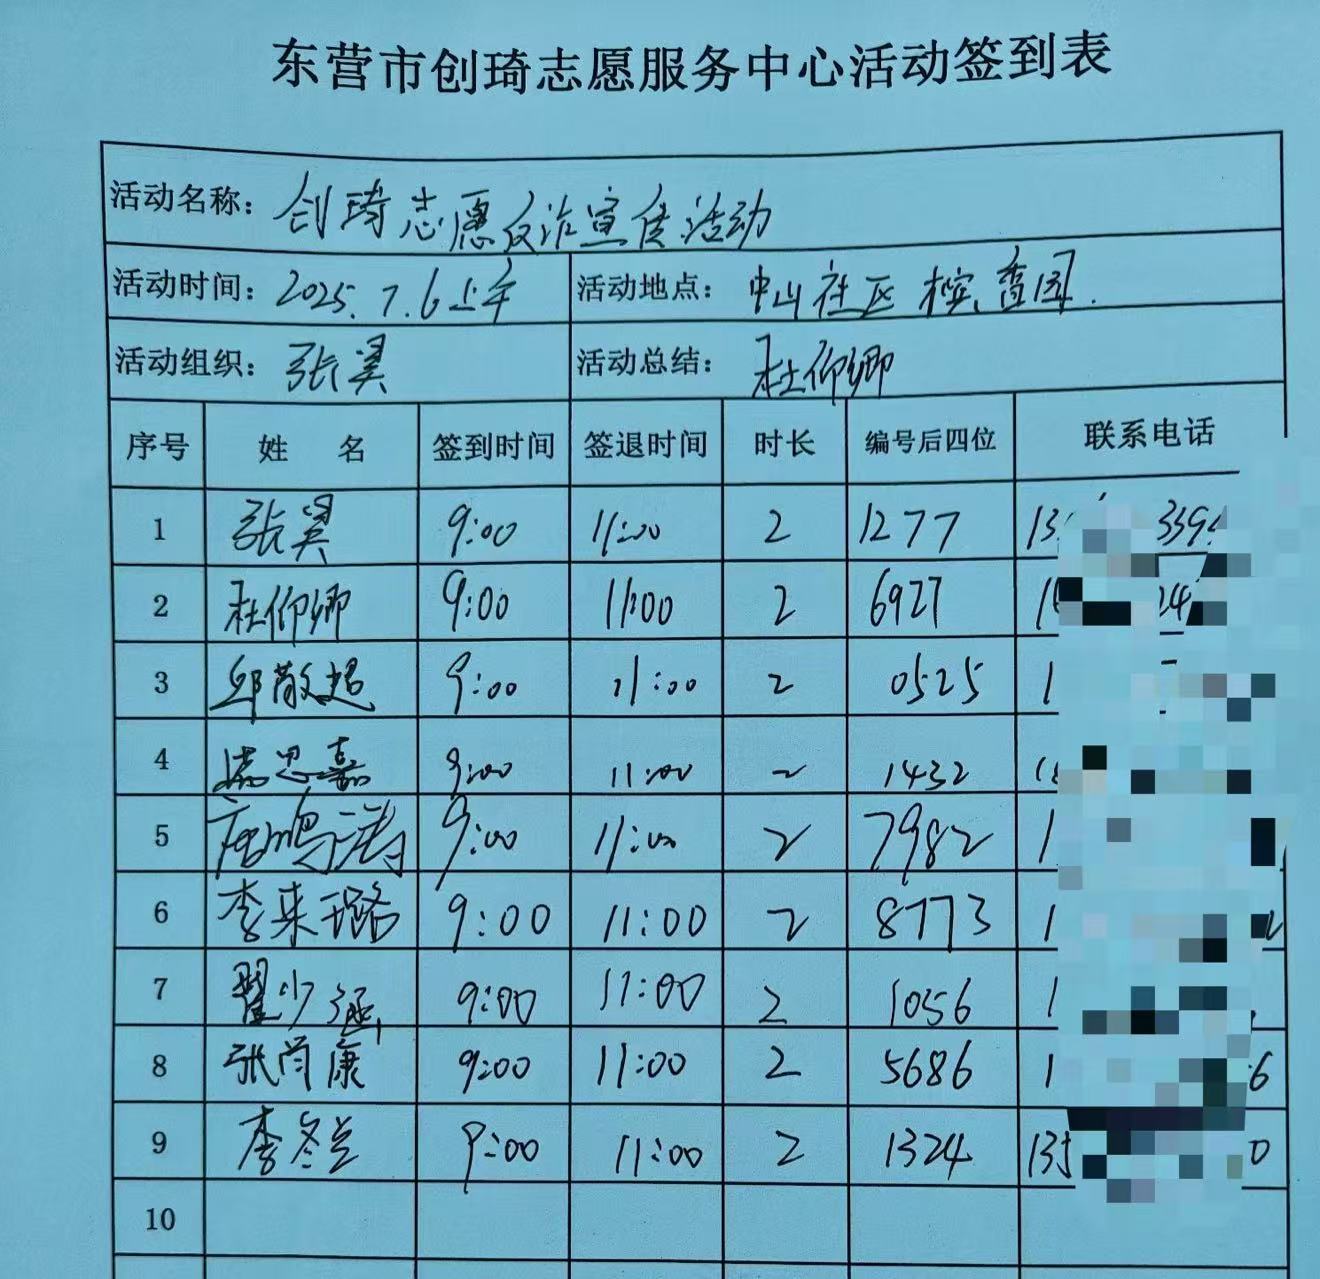 东营市创琦志愿服务中心活动签到表
活动名称: 创琦志愿反诈宣传活动
活动时间: 2025.7.6上午 活动地点: 中山社区 槟香园.
活动组织: 张昊 活动总结: 杜仰卿
序号 姓 名 签到时间 签退时间 时长 编号后四位 联系电话
1 张昊 9:00 11:00 2 1277 13 339
2 杜仰卿 9:00 11:00 2 6927 1 24
3 邱敬超 9:00 11:00 2 0525 1
4 思嘉 9:00 11:00 2 1432 1
5 唐鹏涛 9:00 11:00 2 7982 1
6 李来璐 9:00 11:00 2 8773 1 2
7 翟少涵 9:00 11:00 2 1056 1
8 张尚康 9:00 11:00 2 5686 1 6
9 李冬兰 9:00 11:00 2 1324 13 0
10